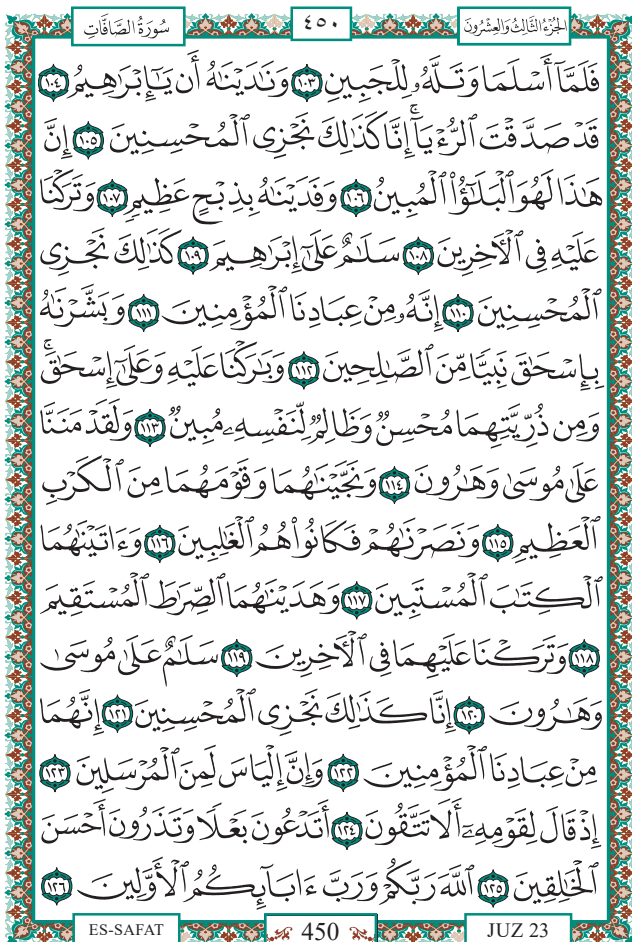 سُورَةُ الصَّافَّاتِ ٤٥٠ الجُزْءُ الثَّالِثُ وَالعِشْرُونَ
فَلَمَّآ أَسْلَمَا وَتَلَّهُۥ لِلْجَبِينِ ١٠٣ وَنَٰدَيْنَٰهُ أَن يَٰٓإِبْرَٰهِيمُ ١٠٤
قَدْ صَدَّقْتَ ٱلرُّءْيَآ ۚ إِنَّا كَذَٰلِكَ نَجْزِى ٱلْمُحْسِنِينَ ١٠٥ إِنَّ
هَٰذَا لَهُوَ ٱلْبَلَٰٓؤُا۟ ٱلْمُبِينُ ١٠٦ وَفَدَيْنَٰهُ بِذِبْحٍ عَظِيمٍ ١٠٧ وَتَرَكْنَا
عَلَيْهِ فِى ٱلْأَخِرِينَ ١٠٨ سَلَٰمٌ عَلَىٰٓ إِبْرَٰهِيمَ ١٠٩ كَذَٰلِكَ نَجْزِى
ٱلْمُحْسِنِينَ ١١٠ إِنَّهُۥ مِنْ عِبَادِنَا ٱلْمُؤْمِنِينَ ١١١ وَبَشَّرْنَٰهُ
بِإِسْحَٰقَ نَبِيًّا مِّنَ ٱلصَّٰلِحِينَ ١١٢ وَبَٰرَكْنَا عَلَيْهِ وَعَلَىٰٓ إِسْحَٰقَ ۚ
وَمِن ذُرِّيَّتِهِمَا مُحْسِنٌ وَظَالِمٌ لِّنَفْسِهِۦ مُبِينٌ ١١٣ وَلَقَدْ مَنَنَّا
عَلَىٰ مُوسَىٰ وَهَٰرُونَ ١١٤ وَنَجَّيْنَٰهُمَا وَقَوْمَهُمَا مِنَ ٱلْكَرْبِ
ٱلْعَظِيمِ ١١٥ وَنَصَرْنَٰهُمْ فَكَانُوا۟ هُمُ ٱلْغَٰلِبِينَ ١١٦ وَءَاتَيْنَٰهُمَا
ٱلْكِتَٰبَ ٱلْمُسْتَبِينَ ١١٧ وَهَدَيْنَٰهُمَا ٱلصِّرَٰطَ ٱلْمُسْتَقِيمَ
١١٨ وَتَرَكْنَا عَلَيْهِمَا فِى ٱلْأَخِرِينَ ١١٩ سَلَٰمٌ عَلَىٰ مُوسَىٰ
وَهَٰرُونَ ١٢٠ إِنَّا كَذَٰلِكَ نَجْزِى ٱلْمُحْسِنِينَ ١٢١ إِنَّهُمَا
مِنْ عِبَادِنَا ٱلْمُؤْمِنِينَ ١٢٢ وَإِنَّ إِلْيَاسَ لَمِنَ ٱلْمُرْسَلِينَ ١٢٣
إِذْ قَالَ لِقَوْمِهِۦٓ أَلَا تَتَّقُونَ ١٢٤ أَتَدْعُونَ بَعْلًا وَتَذَرُونَ أَحْسَنَ
ٱلْخَٰلِقِينَ ١٢٥ ٱللَّهَ رَبَّكُمْ وَرَبَّ ءَابَآئِكُمُ ٱلْأَوَّلِينَ ١٢٦
ES-SAFAT 450 JUZ 23